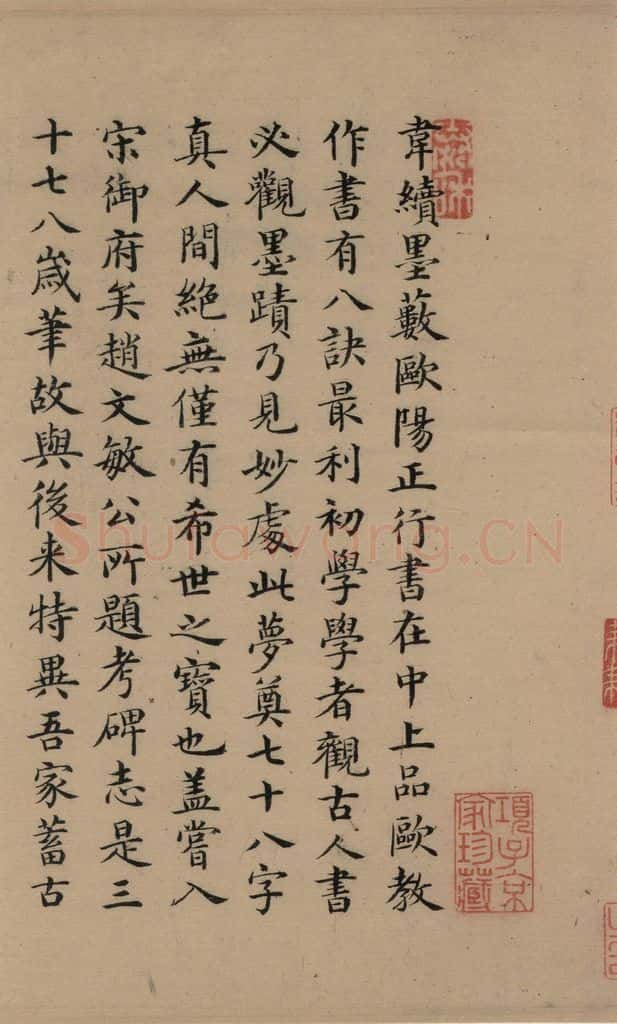 韋續墨藪歐陽正行書在中上品歐教
作書有八訣最利初學學者觀古人書
必觀墨蹟乃見妙處此夢奠七十八字
真人間絶無僅有希世之寶也盖嘗入
宋御府矣趙文敏公所題考碑志是三
十七八歲筆故與後来特異吾家蓄古
項子京
家珍藏
Shufawang.CN